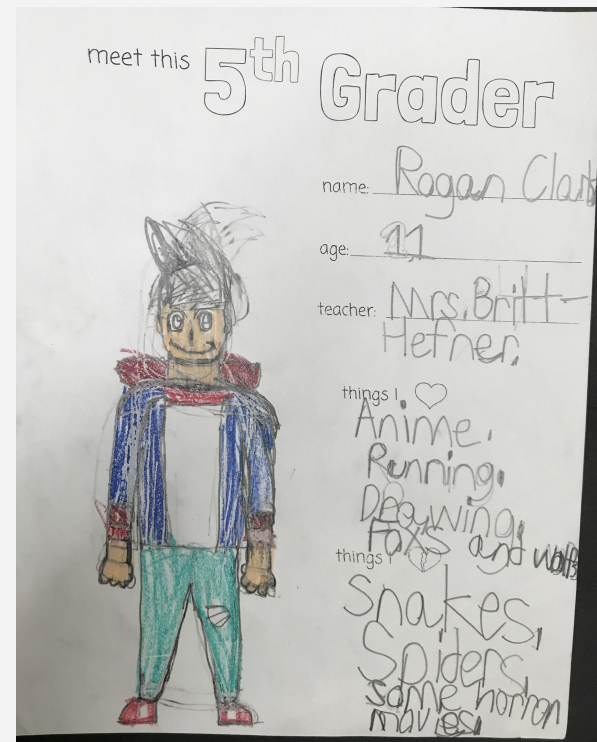 meet this 5th Grader
name: Rogan Clark
age: 11
teacher: Mrs. Britt-
Hefner.
things I
Anime.
Running,
Drawing,
Foxs and wolfs
things I
Snakes,
Spiders,
some horror
movies,